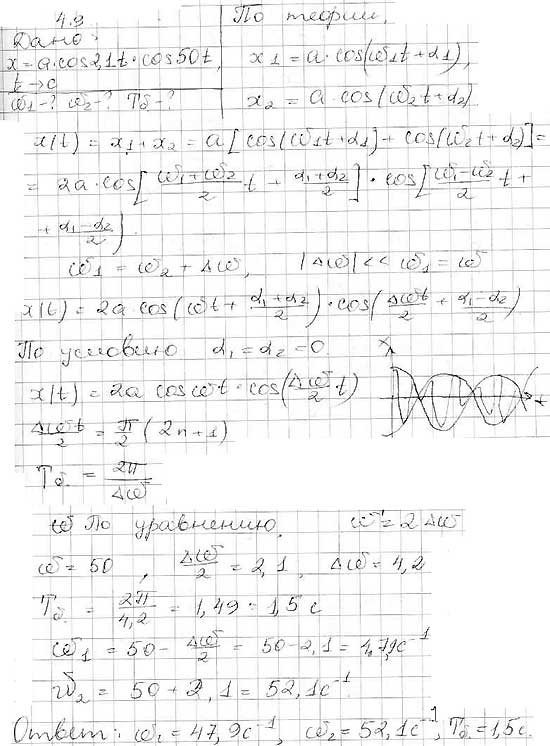 4.9
Дано:
x = a·cos2,1t·cos50t,
t → c
ω1-? ω2-? Tδ-?
По теории,
x1 = a·cos(ω1t+α1),
x2 = a·cos(ω2t+α2)
x(t) = x1+x2 = a[cos(ω1t+α1)+cos(ω2t+α2)]=
= 2a·cos[(ω1+ω2)/2 t + (α1+α2)/2]·cos[(ω1-ω2)/2 t +
+ (α1-α2)/2].
ω1 = ω2 + Δω, |Δω| << ω1 = ω
x(t) = 2a·cos(ωt + (α1+α2)/2)·cos(Δωt/2 + (α1-α2)/2)
По условию α1 = α2 = 0.
x(t) = 2a cosωt·cos(Δω/2 t)
x
t
Δωt/2 = π/2 (2n+1)
Tδ = 2π/Δω
По уравнению, ω = 2Δω
ω = 50, Δω/2 = 2,1, Δω = 4,2
Tδ = 2π/4,2 = 1,49 = 1,5 c
ω1 = 50 - Δω/2 = 50-2,1 = 47,9c⁻¹
ω2 = 50 + 2,1 = 52,1c⁻¹
Ответ: ω1 = 47,9c⁻¹, ω2 = 52,1c⁻¹, Tδ = 1,5c.